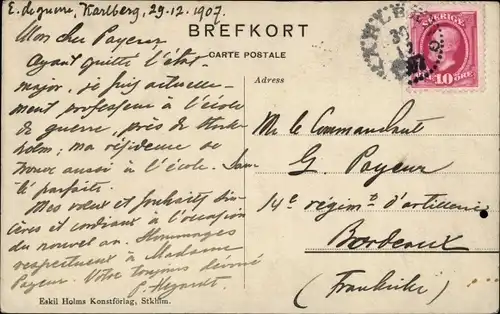 E. de guerre, Karlberg, 29.12.1907.
BREFKORT
CARTE POSTALE
Adress
SVERIGE
10 ÖRE
Mon cher Payeur
Ayant quitté l'état-
major, je suis actuelle-
ment professeur à l'école
de guerre, près de Stock-
holm; ma résidence se
trouve aussi à l'école. San-
té parfaite.
Mes vœux et souhaits sin-
cères et cordiaux à l'occasion
du nouvel an. Hommages
respectueux à Madame
Payeur. Votre toujours dévoué
Mr le Commandant
G. Payeur
14e régimt d'artillerie
Bordeaux
(Frankrike)
Eskil Holms Konstförlag, Stkhlm.